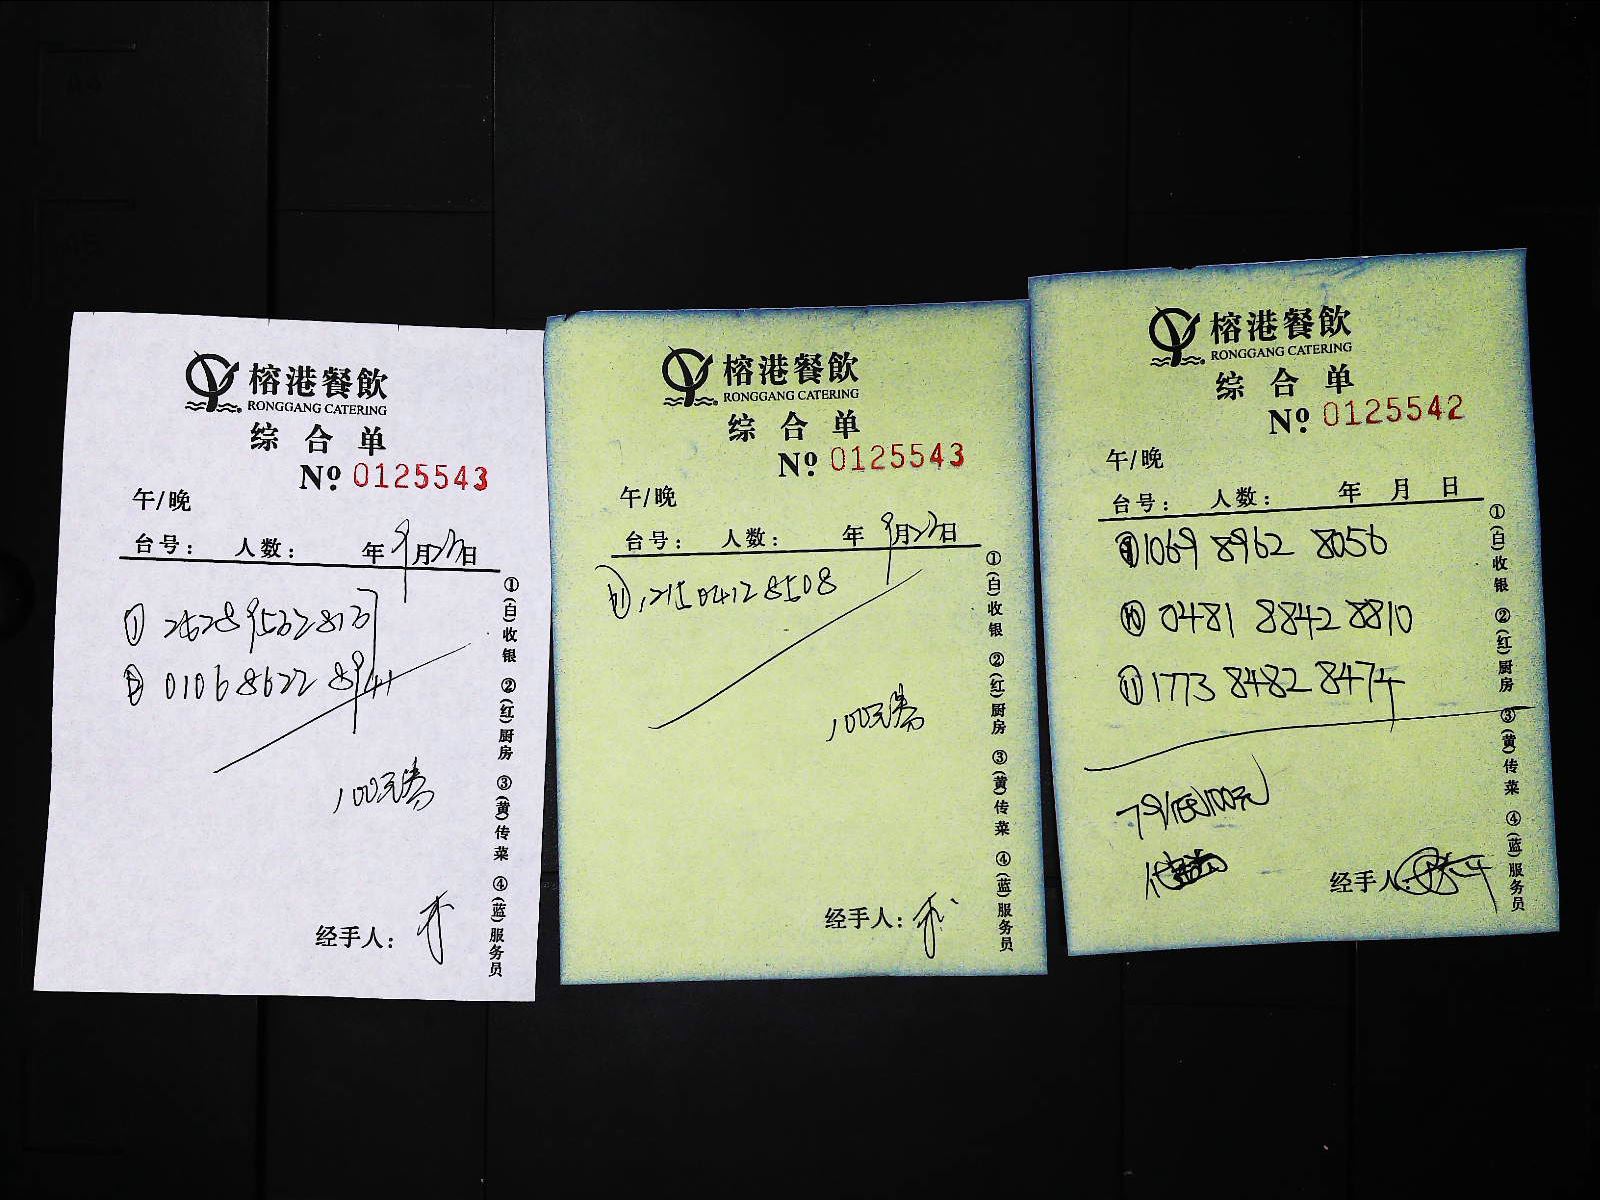 榕港餐飲
RONGGANG CATERING
综合单
№ 0125543
午/晚
台号： 人数： 年9月27日
① 2628 9562 8131
② 0106 8622 8941
100元券
经手人：
①(白)收银 ②(红)厨房 ③(黄)传菜 ④(蓝)服务员
榕港餐飲
RONGGANG CATERING
综合单
№ 0125543
午/晚
台号： 人数： 年9月27日
1215 0412 8508
100元券
经手人：
①(白)收银 ②(红)厨房 ③(黄)传菜 ④(蓝)服务员
榕港餐飲
RONGGANG CATERING
综合单
№ 0125542
午/晚
台号： 人数： 年 月 日
⑨ 1069 8962 8056
⑩ 0481 8842 8810
⑪ 1773 8482 8474
100元
经手人：
①(白)收银 ②(红)厨房 ③(黄)传菜 ④(蓝)服务员